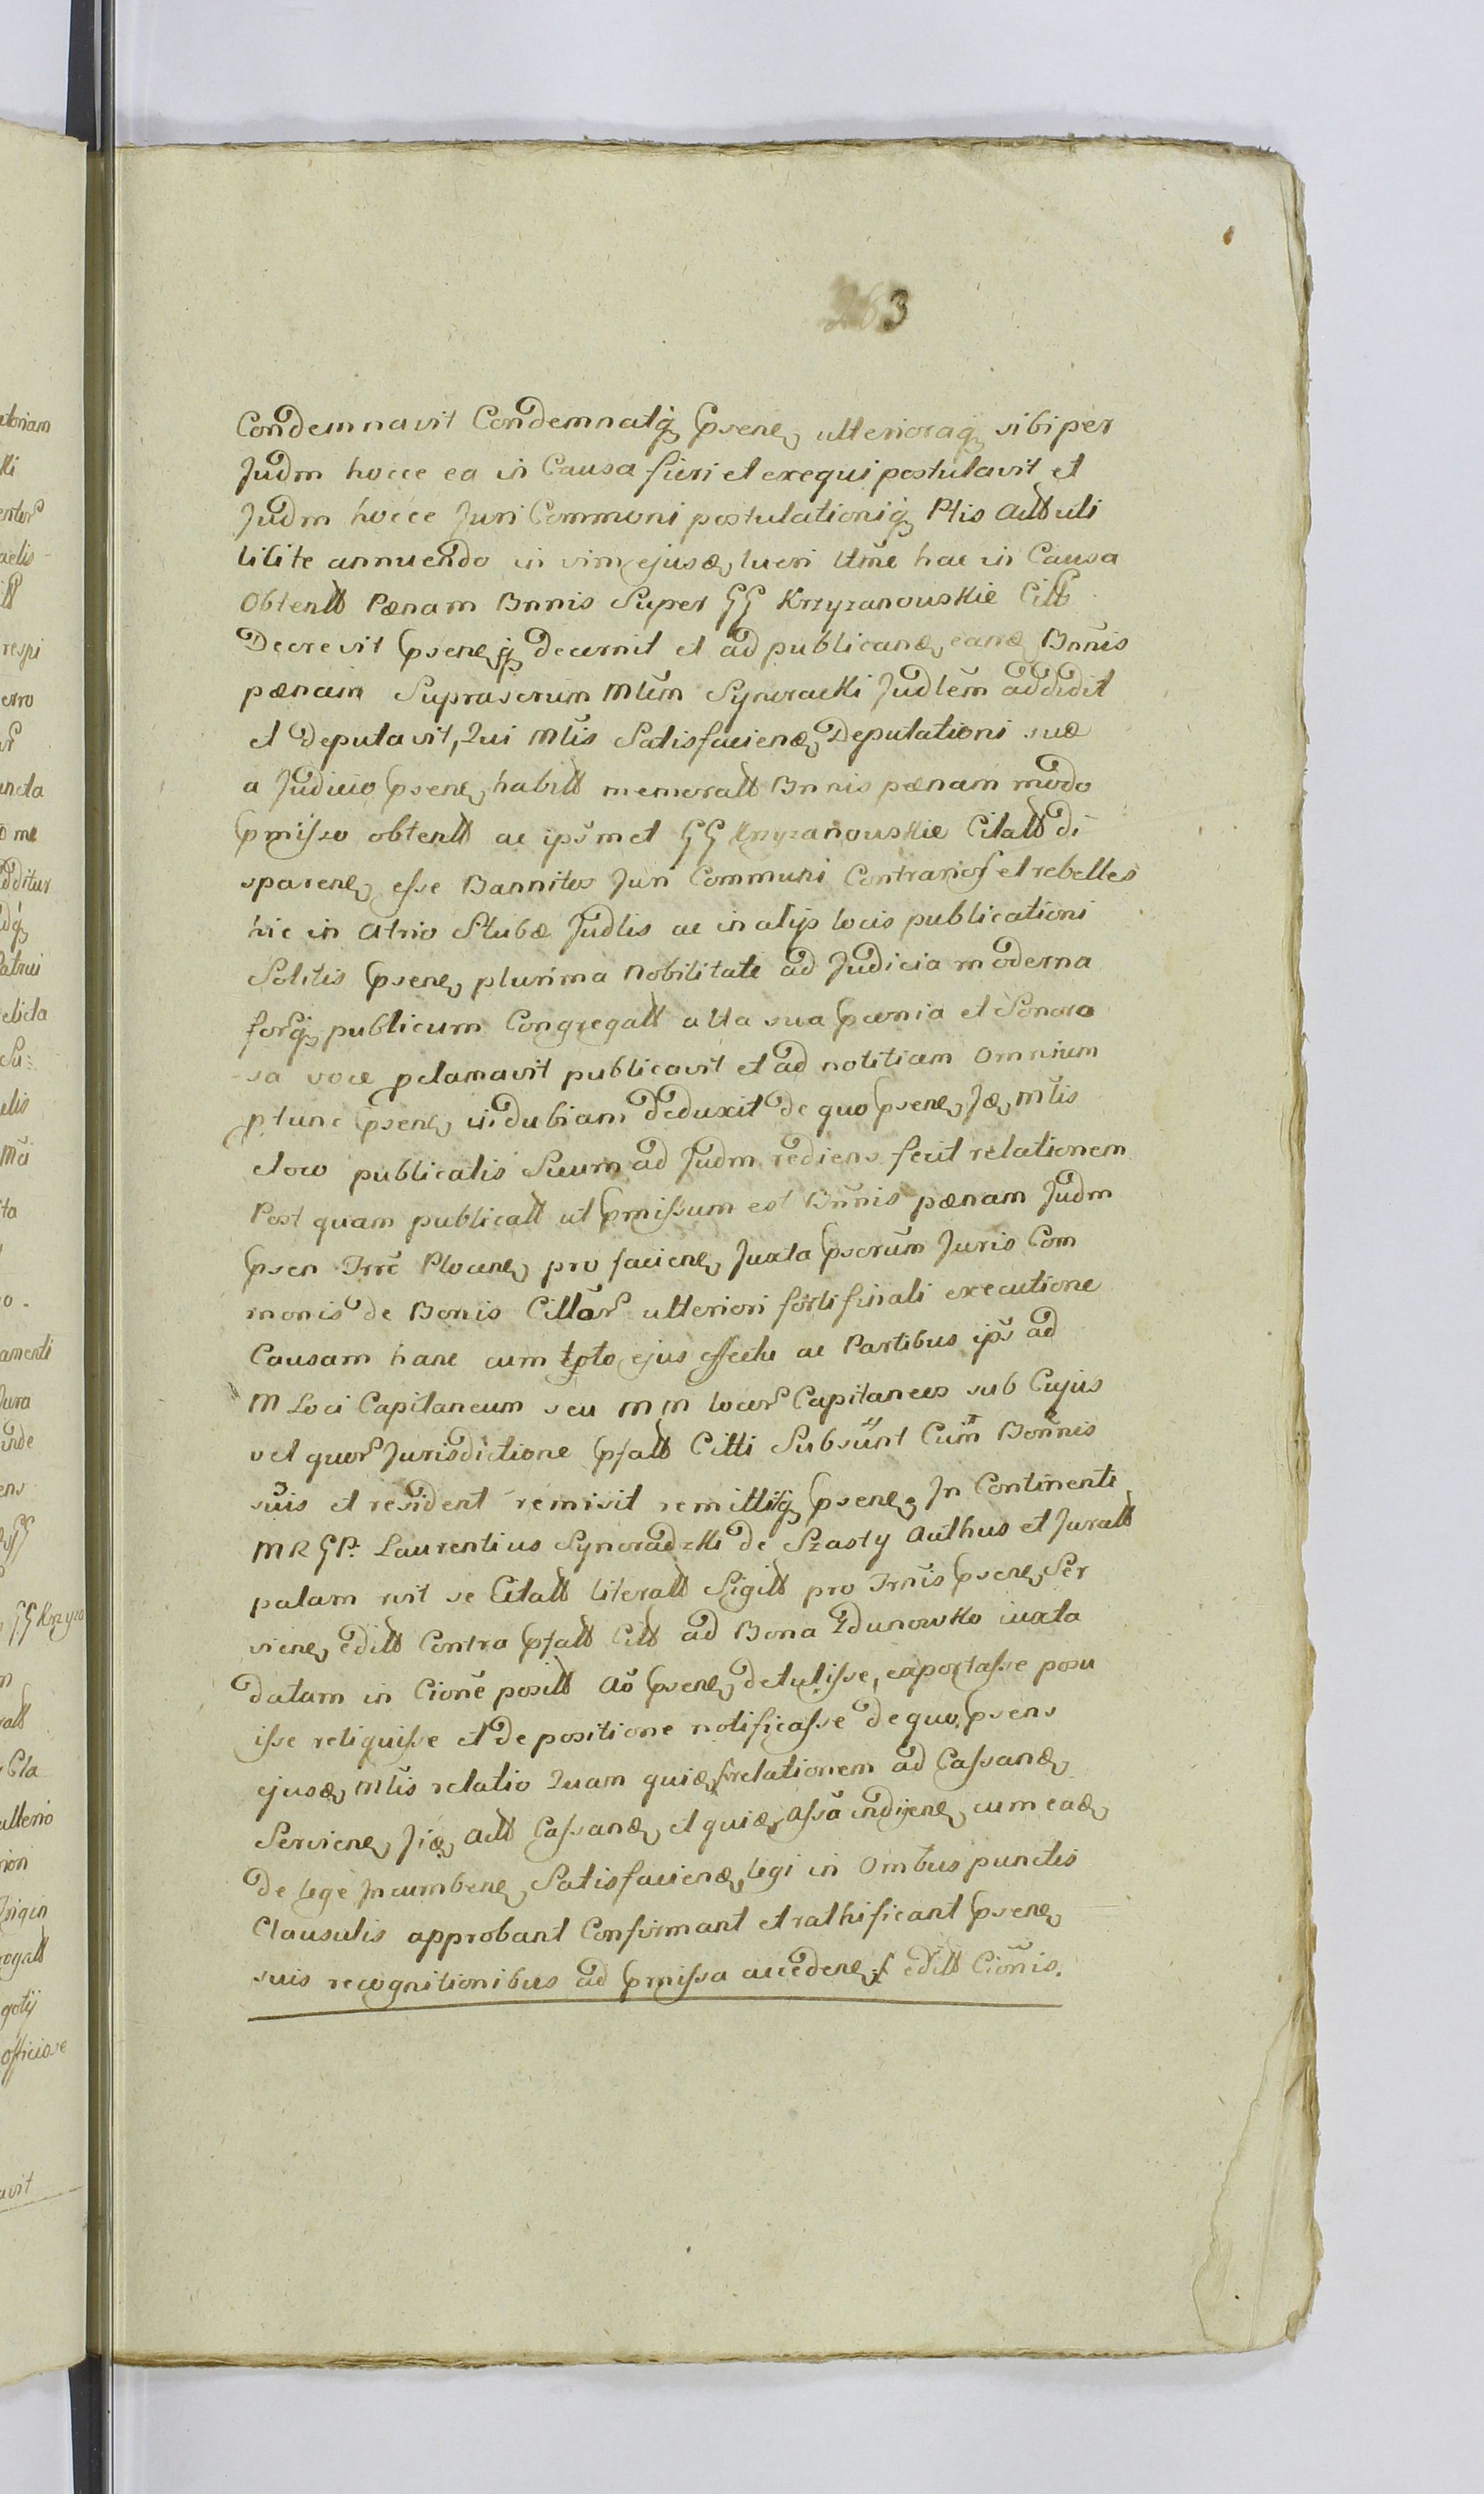 263
Condemnavit Condemnatq psene ulterioraq sibi per
Judm hocce ea in Causa fieri et exequi postulavit et
Judm hocce Juri Communi postulationiq Ptis Actt uti
licite annuendo in vim ejusd lucri Ultme hac in Causa
Obtentt Pænam Bnnis Super GG Krzyzanouskie Citt
Decrevit pseneq decernit et ad publicand eand Bnnis
pænam Suprascrum Mlem Syneracki Judlem addidit
et deputavit, Qui Mlis Satisfaciend Deputationi suæ
a Judicio psene habitt memoratt Bnnis pænam modo
pmisso obtentt ac ipsmet GG Krzyzanouskie Citatt di
sparene esse Bannitos Juri Communi Contrarios et rebelles
hic in Atrio Stubæ Judlis ac in alijs locis publicationi
Solitis psene plurima Nobilitate ad Judicia moderna
forq publicum Congregatt alta sua pconia et Sonoro
sa voce pclamavit publicavit et ad notitiam Omnium
ptunc psene indubiam deduxit de quo psene Jd Mlis
eloco publicatis Suum ad Judm rediens fecit relationem
Post quam publicatt ut pmissum est Bnnis pænam Judm
psen Trre Plocene pro faciene Juxta pscrum Juris Com
monis de Bonis Cittor ulteriori forti finali executione
Causam hanc cum toto ejus effectu ac Partibus ips ad
M Loci Capitaneum seu MM locor Capitaneos sub Cujus
vel quor Jurisdictione pfatt Citti Subsunt Cum Bonnis
suis et resident remisit remittitq psene In Continenti
MRGP. Laurentius Syneradzki de Szasty Authus et Juratt
palam rvit se Citatt literatt Sigitt pro Trnis psene Ser
viene editt Contra pfatt Citt ad Bona Zdunowko iuxta
datam in Cione positt Ao psene detulisse, exportasse posu
isse reliquisse et de positione notificasse de quo psens
ejusd Mlis relatio Quam quid relationem ad Cassand
Serviene Jid Actt Cassand et quid assa indigene cum ead
de lege Incumbene Satisfaciend legi in Ombus punctis
Clausulis approbant Confirmant et rathificant psene
suis recognitionibus ad pmissa accedene editt Cionis.